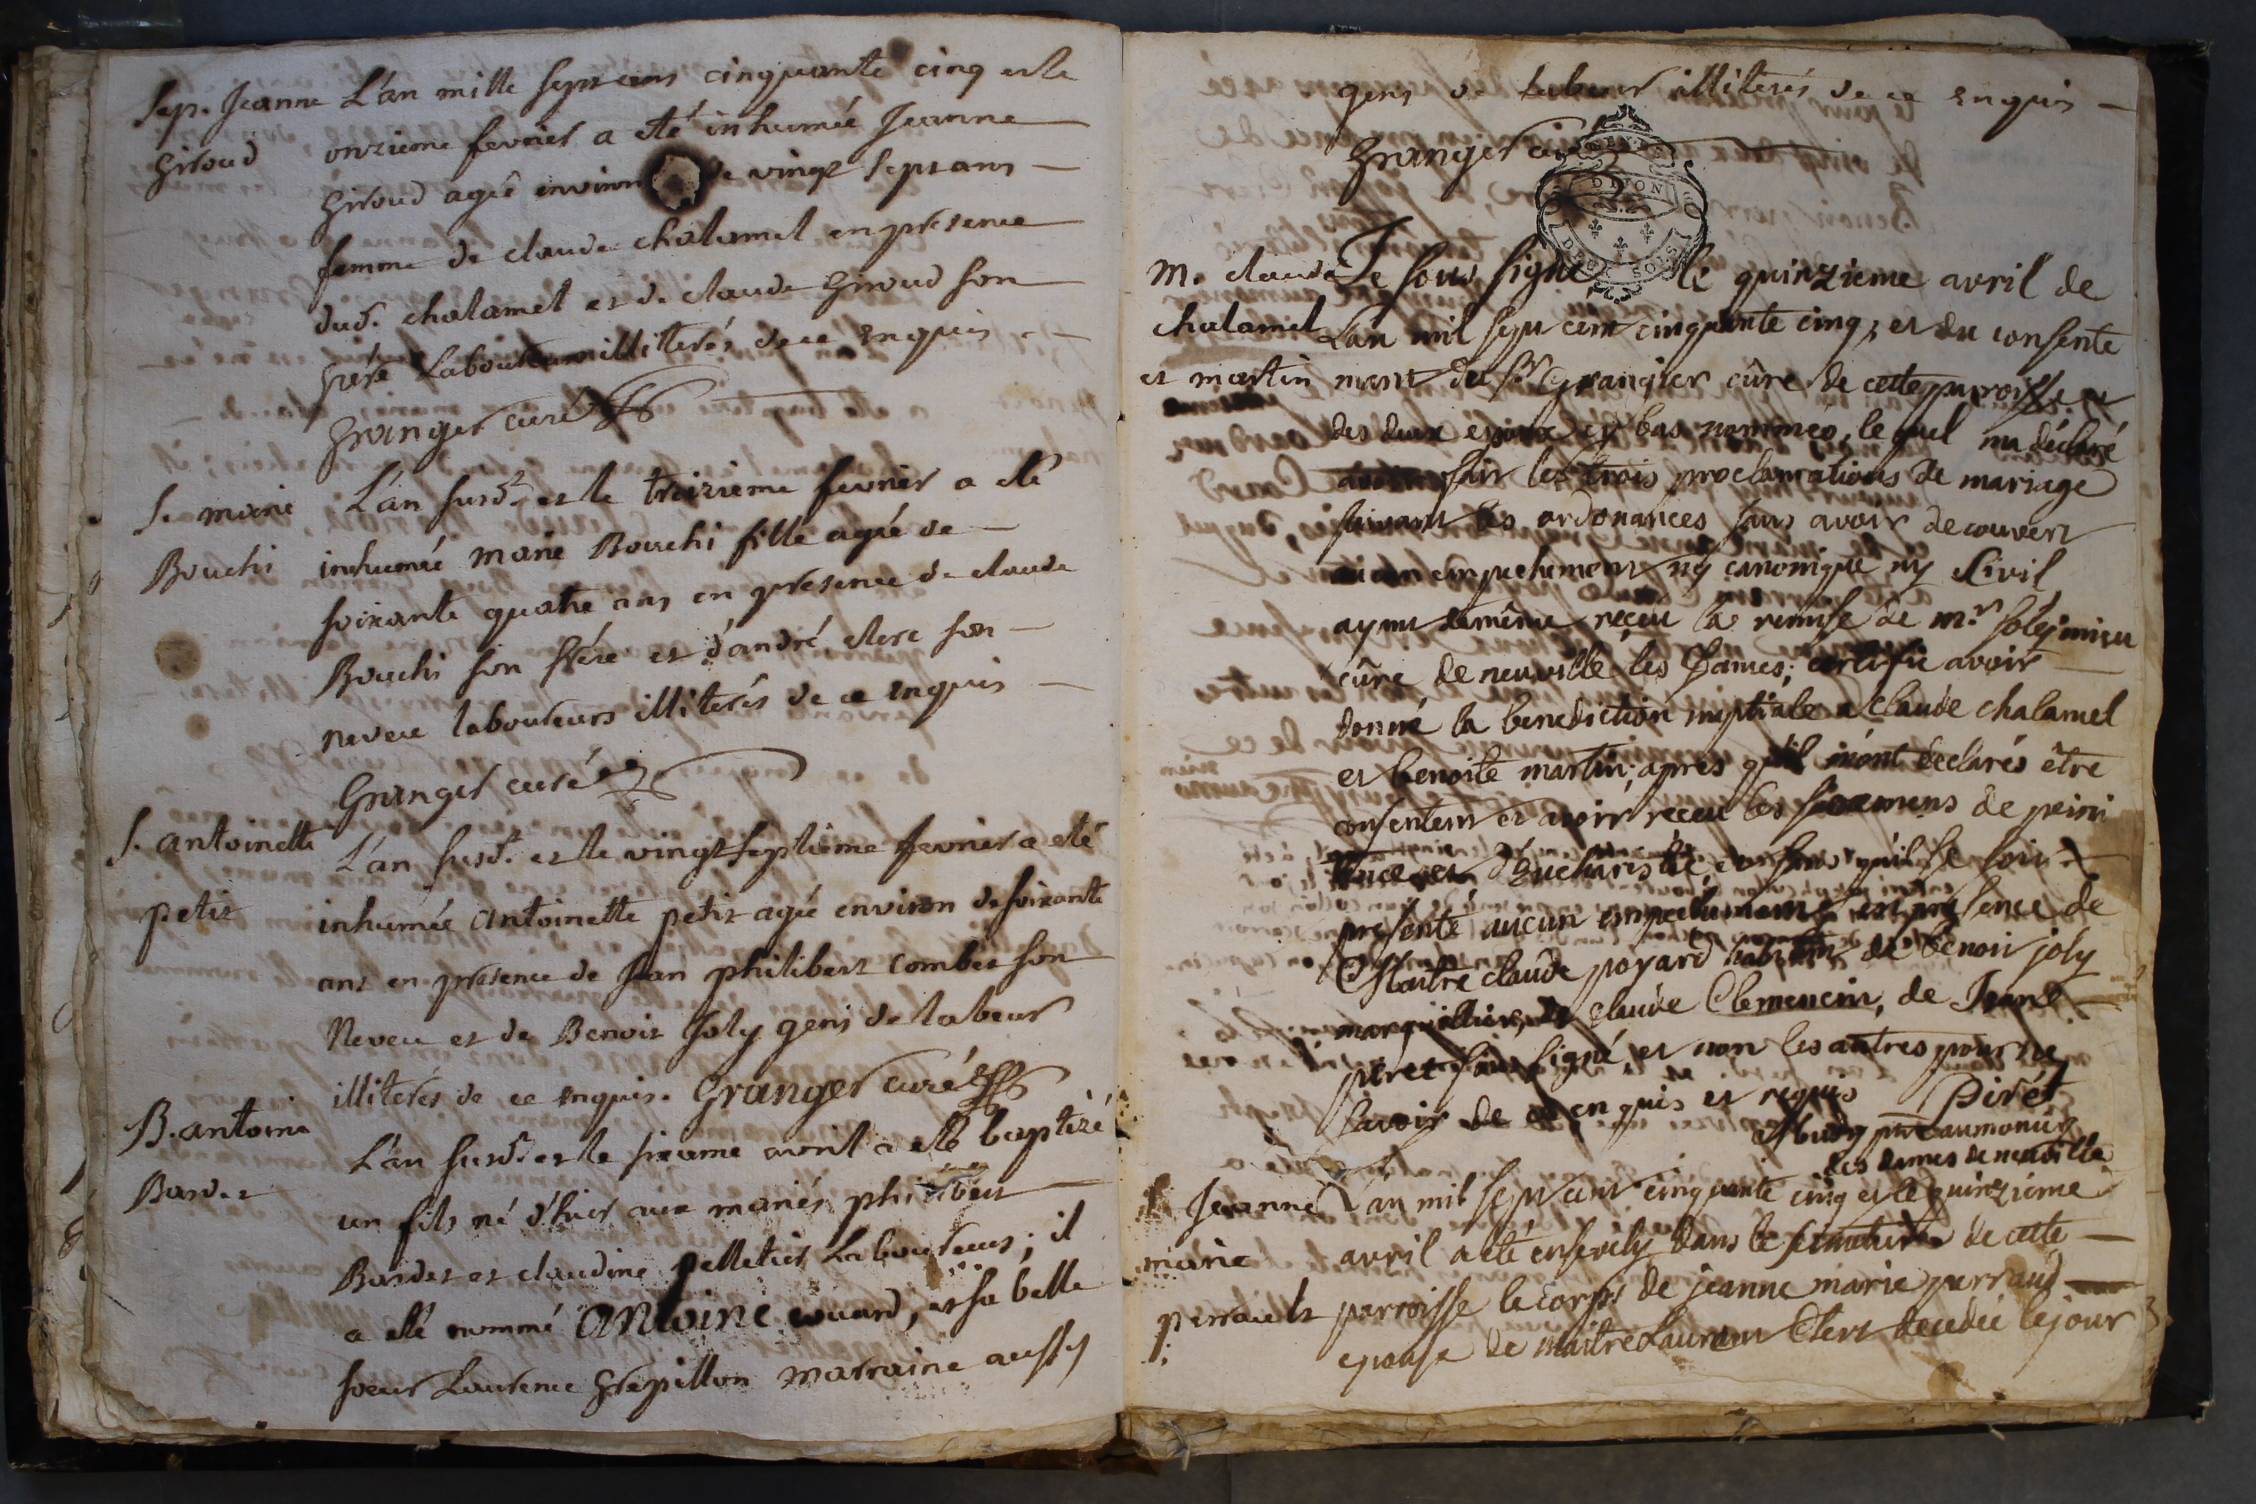 Sep. Jeanne
Giroud
L'an mille sept cens cinquante cinq et le
onzieme fevrier a eté inhumée Jeanne
Giroud agée environ de vingt sept ans
femme de claude chalamel en presence
dud. chalamel et de claude Giroud son
frere Laboureurs illiterés de ce enquis
Granger curé
S. marie
Bouchi
L'an susd. et le treizieme fevrier a eté
inhumée marie Bouchi fille agée de
soixante quatre ans en presence de claude
Bouchi son frére et d'andré clerc son
neveu laboureurs illiterés de ce enquis
Granger curé
S. antoinette
petit
L'an susd. et le vingt septieme fevrier a eté
inhumée antoinette petit agée environ de soixante
ans en presence de Jean philibert combet son
Neveu et de Benoit Joly gens de labeur
illiterés de ce enquis. Granger curé
B. antoine
Bardet
L'an susd. et le sixieme avril a eté baptizé
un fils né d'hier aux mariés philibert
Bardet et claudine pelletier Laboureurs; il
a eté nommé antoine , et sa belle
soeur Laurence Grepillon marraine aussy
gens de labeur illiterés de ce enquis
Granger curé
GEN. DE
DIJON
DEUX SOLS
m. claude
chalamel
et martin
Je sous signé le quinzieme avril de
L'an mil sept cent cinquante cinq, et du consente
ment du Sr Grangier cûre de cette parroisse et
des deux epoux cy bas nommés, le quel ma déclaré
avoir fait les trois proclamations de mariage
suivant les ordonances sans avoir decouvert
aucun empechement ny canonique ny Civil
ayant de même reçeu la remise de mr.
cûre de neuville les Dames; certifie avoir
donné la benediction nuptiale a claude chalamel
et benoite martin; apres qu'il m'ont declarés être
consentent et avoir reçeu les sacremens de peni
tence et d'Eucharistie, et sans qu'il se soit
presenté aucun empechement en presence de
Maitre claude poyard de benoit joly
marguillier, de claude Clemencin, de Jean
piret sous signé, et non les autres pour ne
savoir de ce enquis et requis Piret
ptre aumonier
des dames de neuville
Jeanne
marie
perraud
L'an mil sept cent cinquante cinq et le quinzieme
avril a eté ensevely dans le cimetiere de cette
parroisse le corps de jeanne marie perraud
epouse de maitre Laurent Clerc decedée le jour